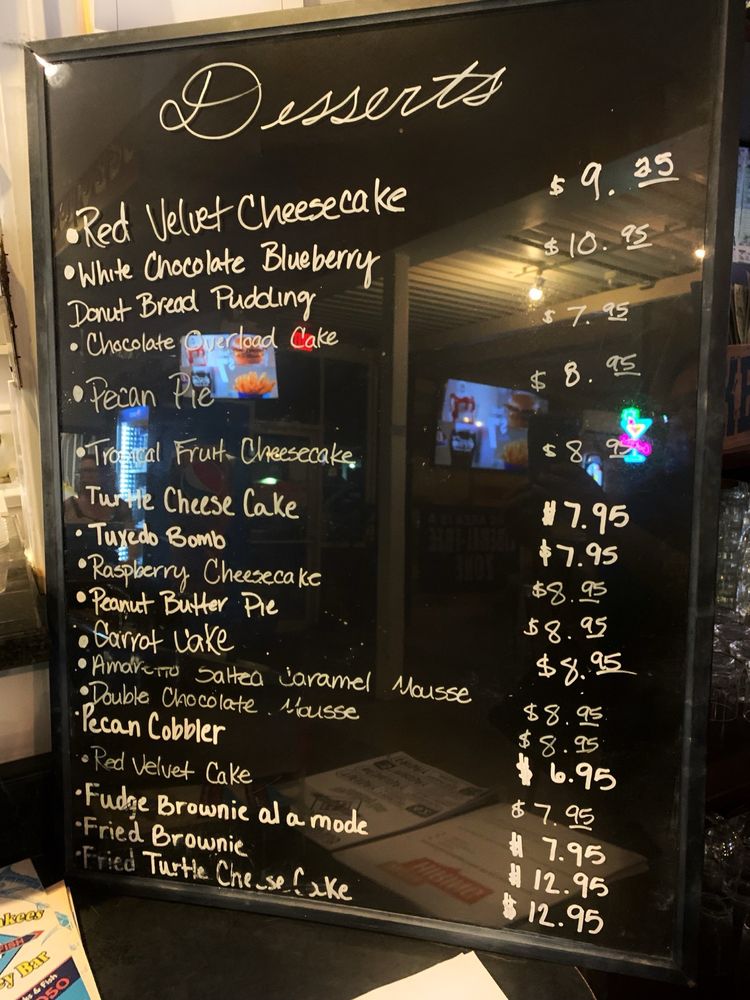 Desserts
• Red Velvet Cheesecake $ 9.25
• White Chocolate Blueberry $10.95
Donut Bread Pudding
• Chocolate Overload Cake $ 7.95
• Pecan Pie $ 8.95
• Tropical Fruit Cheesecake $ 8.95
Turtle Cheese Cake $7.95
• Tuxedo Bomb $7.95
• Raspberry Cheesecake $8.95
• Peanut Butter Pie $8.95
• Carrot Cake $8.95
• Amaretto Salted Caramel Mousse $8.95
• Double Chocolate Mousse $8.95
• Pecan Cobbler $ 6.95
• Red Velvet Cake $ 7.95
• Fudge Brownie al a mode $ 7.95
• Fried Brownie $ 12.95
• Fried Turtle Cheese Cake $ 12.95